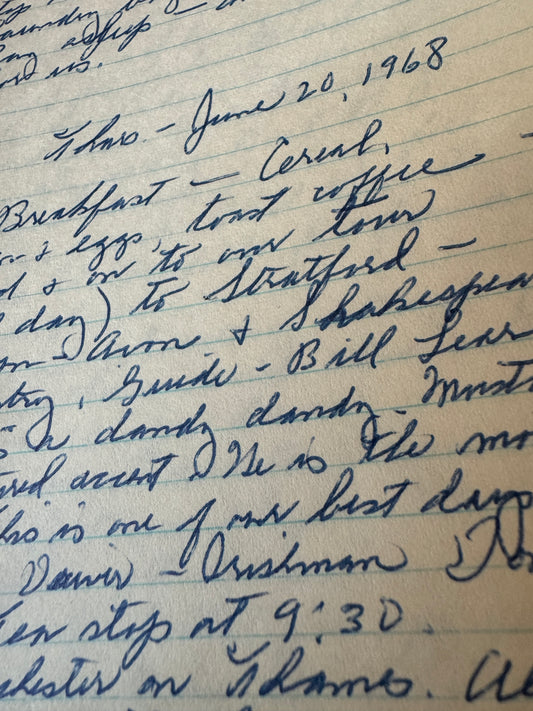 asleep -
us.
Thurs. - June 20, 1968
Breakfast - Cereal,
& eggs, toast coffee -
& on to our tour
day) to Stratford -
on Avon & Shakespea
try, Guide - Bill Lear
a dandy dandy. Must
accent. He is the mo
his is one of our best days
Driver - Irishman
Tea stop at 9:30.
chester on Thames.